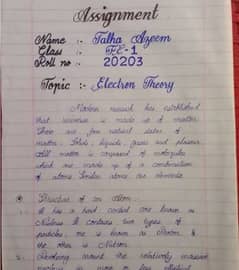 Assignment
Name :- Talha Azeem
Class :- FE-1
Roll no :- 20203
Topic :- Electron Theory
Modern research has established
that universe is made up of matter.
There are few natural states of
matter. Solids, liquids, gases and plasma.
All matter is composed of molecules
which are made up of a combination
of atoms. Similar atoms are elements.
Structure of an Atom:
It has a hard central core known as
Nucleus. It contains two types of
particles, one is known as Proton &
the other is Neutron.
Revolving around the relatively massive
nucleus, in more or less elliptical